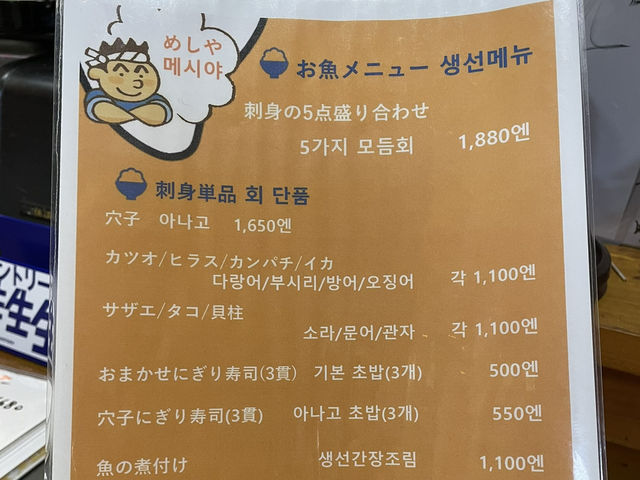 めしや
메시야
お魚メニュー 생선메뉴
刺身の5点盛り合わせ
5가지 모듬회 1,880엔
刺身単品 회 단품
穴子 아나고 1,650엔
カツオ/ヒラス/カンパチ/イカ
다랑어/부시리/방어/오징어 각 1,100엔
サザエ/タコ/貝柱
소라/문어/관자 각 1,100엔
おまかせにぎり寿司(3貫) 기본 초밥(3개) 500엔
穴子にぎり寿司(3貫) 아나고 초밥(3개) 550엔
魚の煮付け 생선간장조림 1,100엔